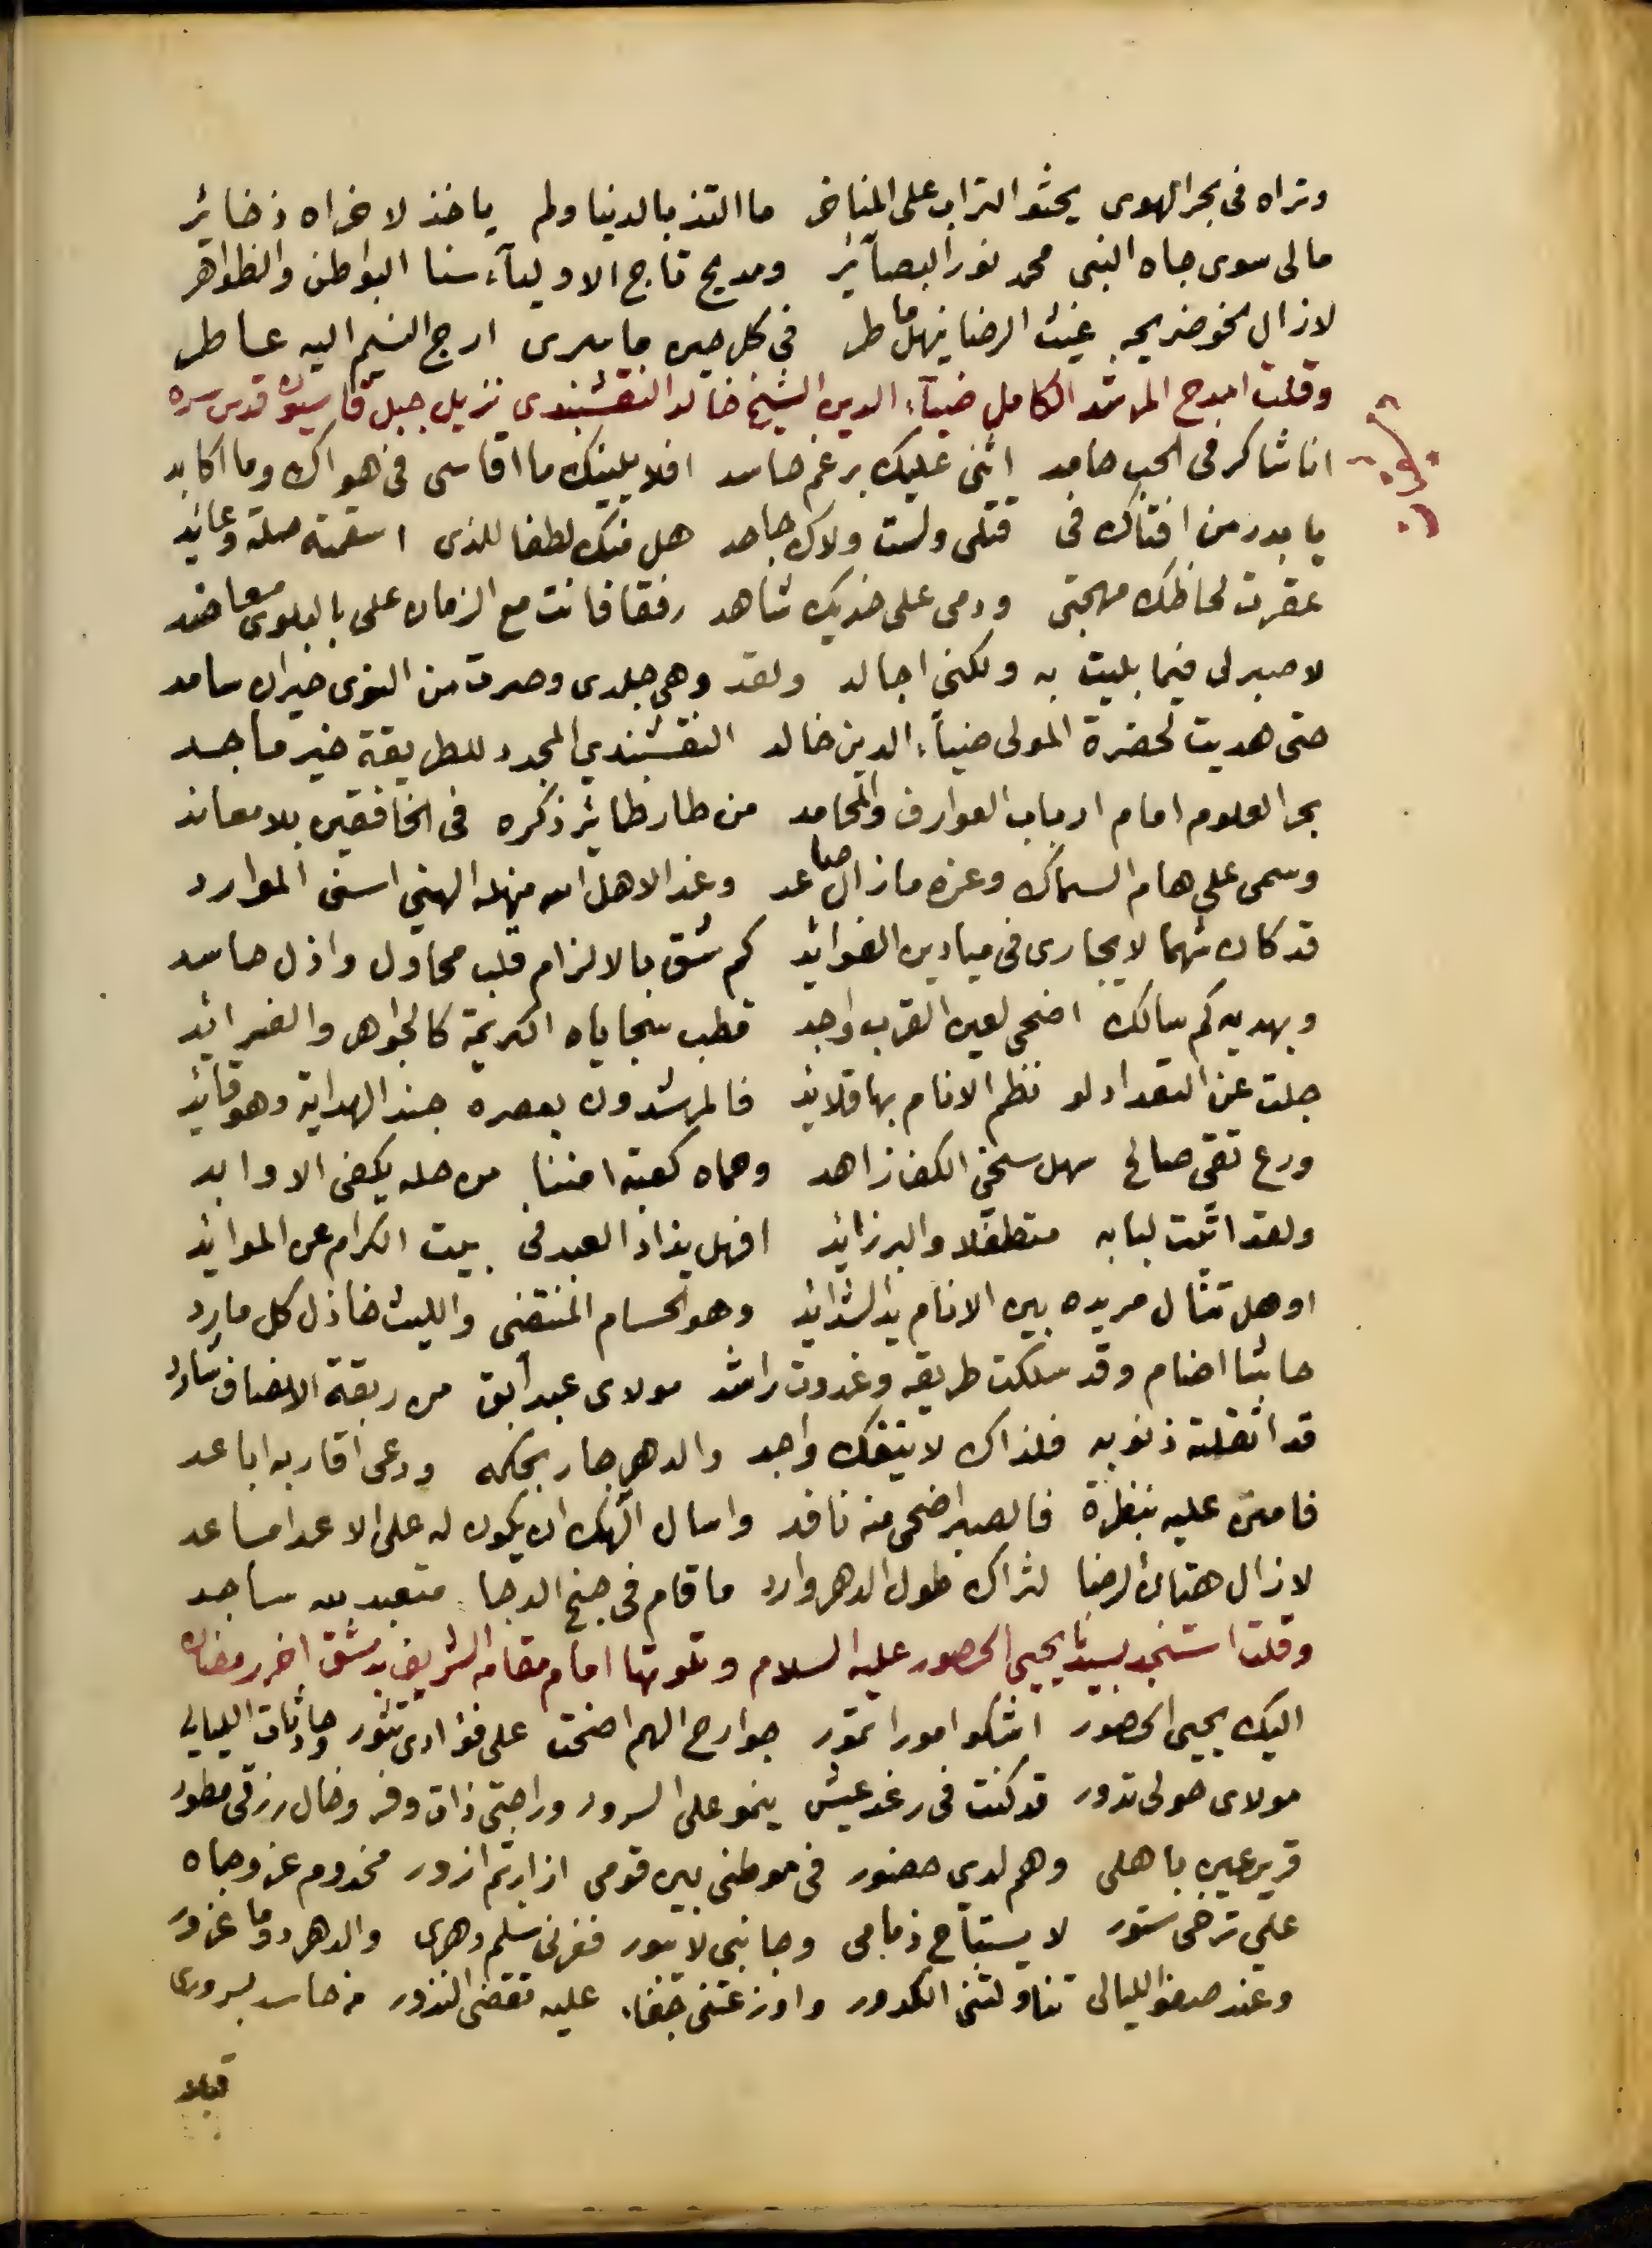 وتراه فى بحر الهوى يحثو التراب على المناخر ما التذ بالدنيا ولم ياخذ لاخراه ذخائر
مالى سوى جاه النبى محمد نور البصآئر ومديح تاج الاوليآء سنا البواطن والظواهر
لازال نحو ضريحه غيث الرضا ينهل ماطر فى كل حين ما سرى ارج النسيم اليه عاطر
وقلت امدح المرشد الكامل ضيآء الدين الشيخ خالد النقشبندى نزيل جبل قاسيون قدس سره
انا شاكر فى الحب حامد اثنى عليك برغم حاسد افلا يلينك ما اقاسى فى هواك وما اكابد
يا بدر من افتاك فى قتلى ولست ولاك جاحد هل منك لطفا للذى اسقمته صلة وعائد
عقرت لحاظك مهجتى ودمى على خديك شاهد رفقا فانت مع الزمان على بالبلوى معاضد
لا صبر لى فيما بليت به ولكنى اجالد ولقد وهى جلدى وصرت من النوى حيران سامد
حتى هديت لحضرة المولى ضيآء الدين خالد النقشبندي المجدد للطريقة خير ماجد
بحر العلوم امام ارباب العوارف والمحامد من طار طائر ذكره فى الخافقين بلا معاند
وسمى على هام السماك وعزه مازال صاعد وغدا لاهل الله منهله الهني اسنى الموارد
قد كان شهما لا يجارى فى ميادين الفوائد كم شق بالالزام قلب محاول واذل حاسد
وبهديه كم سالك اضحى لعين القرب واجد قطب سجاياه الكريمة كالجواهر والفرائد
جلت عن التعداد لو نظم الانام بها قلائد فالمرشدون بعصره جند الهداية وهو قائد
ورع تقى صالح سهل سخي الكف زاهد وحماه كعبة امننا من حله يكفى الاوابد
ولقد اتيت لبابه متطفلا والبر زائد افهل يذاد العبد فى بيت الكرام عن الموائد
او هل تنال مريده بين الانام يد الشدائد وهو الحسام المنتضى والليث خاذل كل مارد
حاشا اضام وقد سلكت طريقه وغدوت راشد مولاى عبد ابق من ربقة الانصاف شارد
قد اثقلته ذنوبه فلذاك لا ينفك واجد والدهر جار بحكمه ودعى اقاربه اباعد
فامنن عليه بنظرة فالصبر اضحى منه نافد واسال الهك ان يكون له على الاعدا مساعد
لازال هتان الرضا لثراك طول الدهر وارد ما قام فى جنح الدجا متعبد لله ساجد
وقلت استنجد بسيدنا يحيى الحصور عليه السلام وتلوتها امام مقامه الشريف بدمشق اخر رمضان
اليك يحيى الحصور اشكوا امورا تمور جوارح الهم اضحت على فؤادى تثور حادثات الليالى
مولاى حولى تدور قد كنت فى رغد عيش ينمو على السرور وراحتى ذات وفر وخال رزقى مطور
قرير عين باهلى وهم لدى حضور فى موطنى بين قومى ازار ثم ازور مخدوم عز وجاه
علي ترخى ستور لا يستباح ذمامى وجانبى لا يبور فغرنى سلم دهرى والدهر دوما غرور
وعند صفو الليالى تناولتنى الكدور واوزعتنى جفاء عليه تقضى النذور من حاسد لسرورى